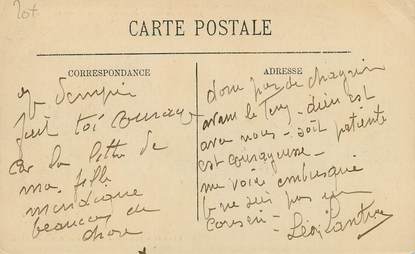 CARTE POSTALE
CORRESPONDANCE
fait toi courage
car la lettre de
ma fille
m'indique
beaucoup de
chose
ADRESSE
donc pas de chagrin
avant le temp. dieu est
avec nous - soit patiente
est courageuse -
me voici embusqué
je ne suis pas un
Léon